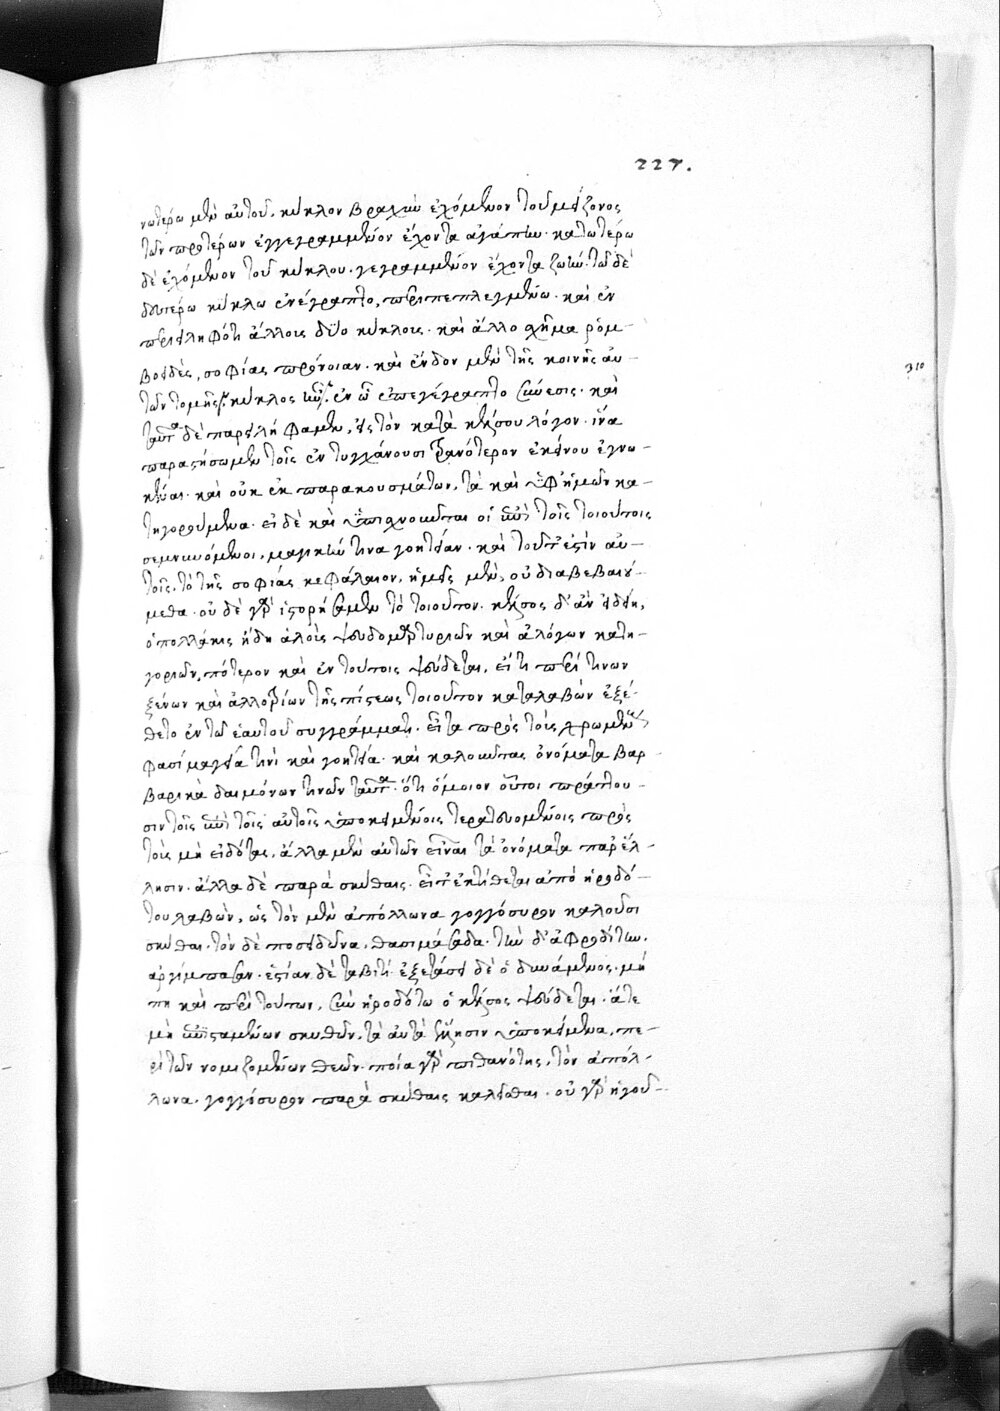 227.
νωτέρω μὲν αὐτοῦ, κύκλον βραχὺν ἐχόμενον τοῦ μείζονος
τῶν προτέρων ἐγγεγραμμένον ἔχοντα ἀγάπην. κατωτέρω
δὲ ἐχόμενον τοῦ κύκλου. γεγραμμένον ἔχοντα ζωήν. τῶ δὲ
δευτέρω κύκλω ἐνέγραπτο, περιπεπλεγμένω. καὶ ἐν
περιειληφότι ἄλλους δύο κύκλους. καὶ ἄλλο σχῆμα ῥομ-
βοειδὲς, σοφίας πρόνοιαν. καὶ ἔνδον μὲν τῆς κοινῆς αὐ-
τῶν τομῆς, κύκλος ἐν ὧ ἐπεγέγραπτο σύνεσις. καὶ
ταῦτα δὲ παρειλήφαμεν, εἰς τὸν κατὰ κέλσου λόγον. ἵνα
παραστήσωμεν τοῖς ἐντυγχάνουσι τρανότερον ἐκείνου ἐγνω-
κέναι. καὶ οὐκ ἐκ παρακουσμάτων, τὰ καὶ ὑφ' ἡμῶν κα-
τηγορούμενα. εἰ δὲ καὶ ὑπισχνοῦνται οἱ ἐπὶ τοῖς τοιούτοις
σεμνυνόμενοι, μαγικήν τινα γοητείαν. καὶ τοῦτ' ἐστὶν αὐ-
τοῖς, τὸ τῆς σοφίας κεφάλαιον, ἡμεῖς μὲν, οὐ διαβεβαιού-
μεθα. οὐ δὲ γὰρ ἱστορήσαμεν τὸ τοιοῦτον. κέλσος δ' ἂν εἰδείη,
ὁ πολλάκις ἤδη ἁλοὺς ψευδομαρτυριῶν καὶ ἀλόγων κατη-
γοριῶν, πότερον καὶ ἐν τούτοις ψεύδεται, εἴ τι περί τινων
ξένων καὶ ἀλλοτρίων τῆς πίστεως τοιοῦτον καταλαβὼν ἐξέ-
θετο ἐν τῶ ἑαυτοῦ συγγράμματι. εἶτα πρὸς τοὺς χρωμένους
φασὶ μαγεία τινὶ καὶ γοητεία. καὶ καλοῦντας ὀνόματα βαρ-
βαρικὰ δαιμόνων τινῶν ταῦτα. ὅτι ὅμοιον οὗτοι πράττου-
σιν τοῖς ἐπὶ τοῖς αὐτοῖς ὑποκειμένοις τερατευομένοις πρὸς
τοὺς μὴ εἰδότας, ἄλλα μὲν αὐτῶν εἶναι τὰ ὀνόματα παρ' ἕλ-
λησιν. ἄλλα δὲ παρὰ σκύθαις. εἶτ' ἐκτίθεται ἀπὸ ἡροδό-
του λαβὼν, ὡς τὸν μὲν ἀπόλλωνα γογγόσυρον καλοῦσι
σκύθαι. τὸν δὲ ποσειδῶνα, θασιμάσαδα. τὴν δ' ἀφροδίτην,
ἀργίμπασαν. ἑστίαν δὲ ταβιτί. ἐξετάσει δὲ ὁ δυνάμενος. μή
πη καὶ περὶ τούτων, σὺν ἡροδότω ὁ κέλσος ψεύδεται. ἅτε
μὴ ἐπισταμένων σκυθῶν, τὰ αὐτὰ ἕλλησιν ὑποκείμενα, πε-
ρὶ τῶν νομιζομένων θεῶν. ποία γὰρ πιθανότης, τὸν ἀπόλ-
λωνα. γογγόσυρον παρὰ σκύθαις καλεῖσθαι. οὐ γὰρ ἡγοῦ-